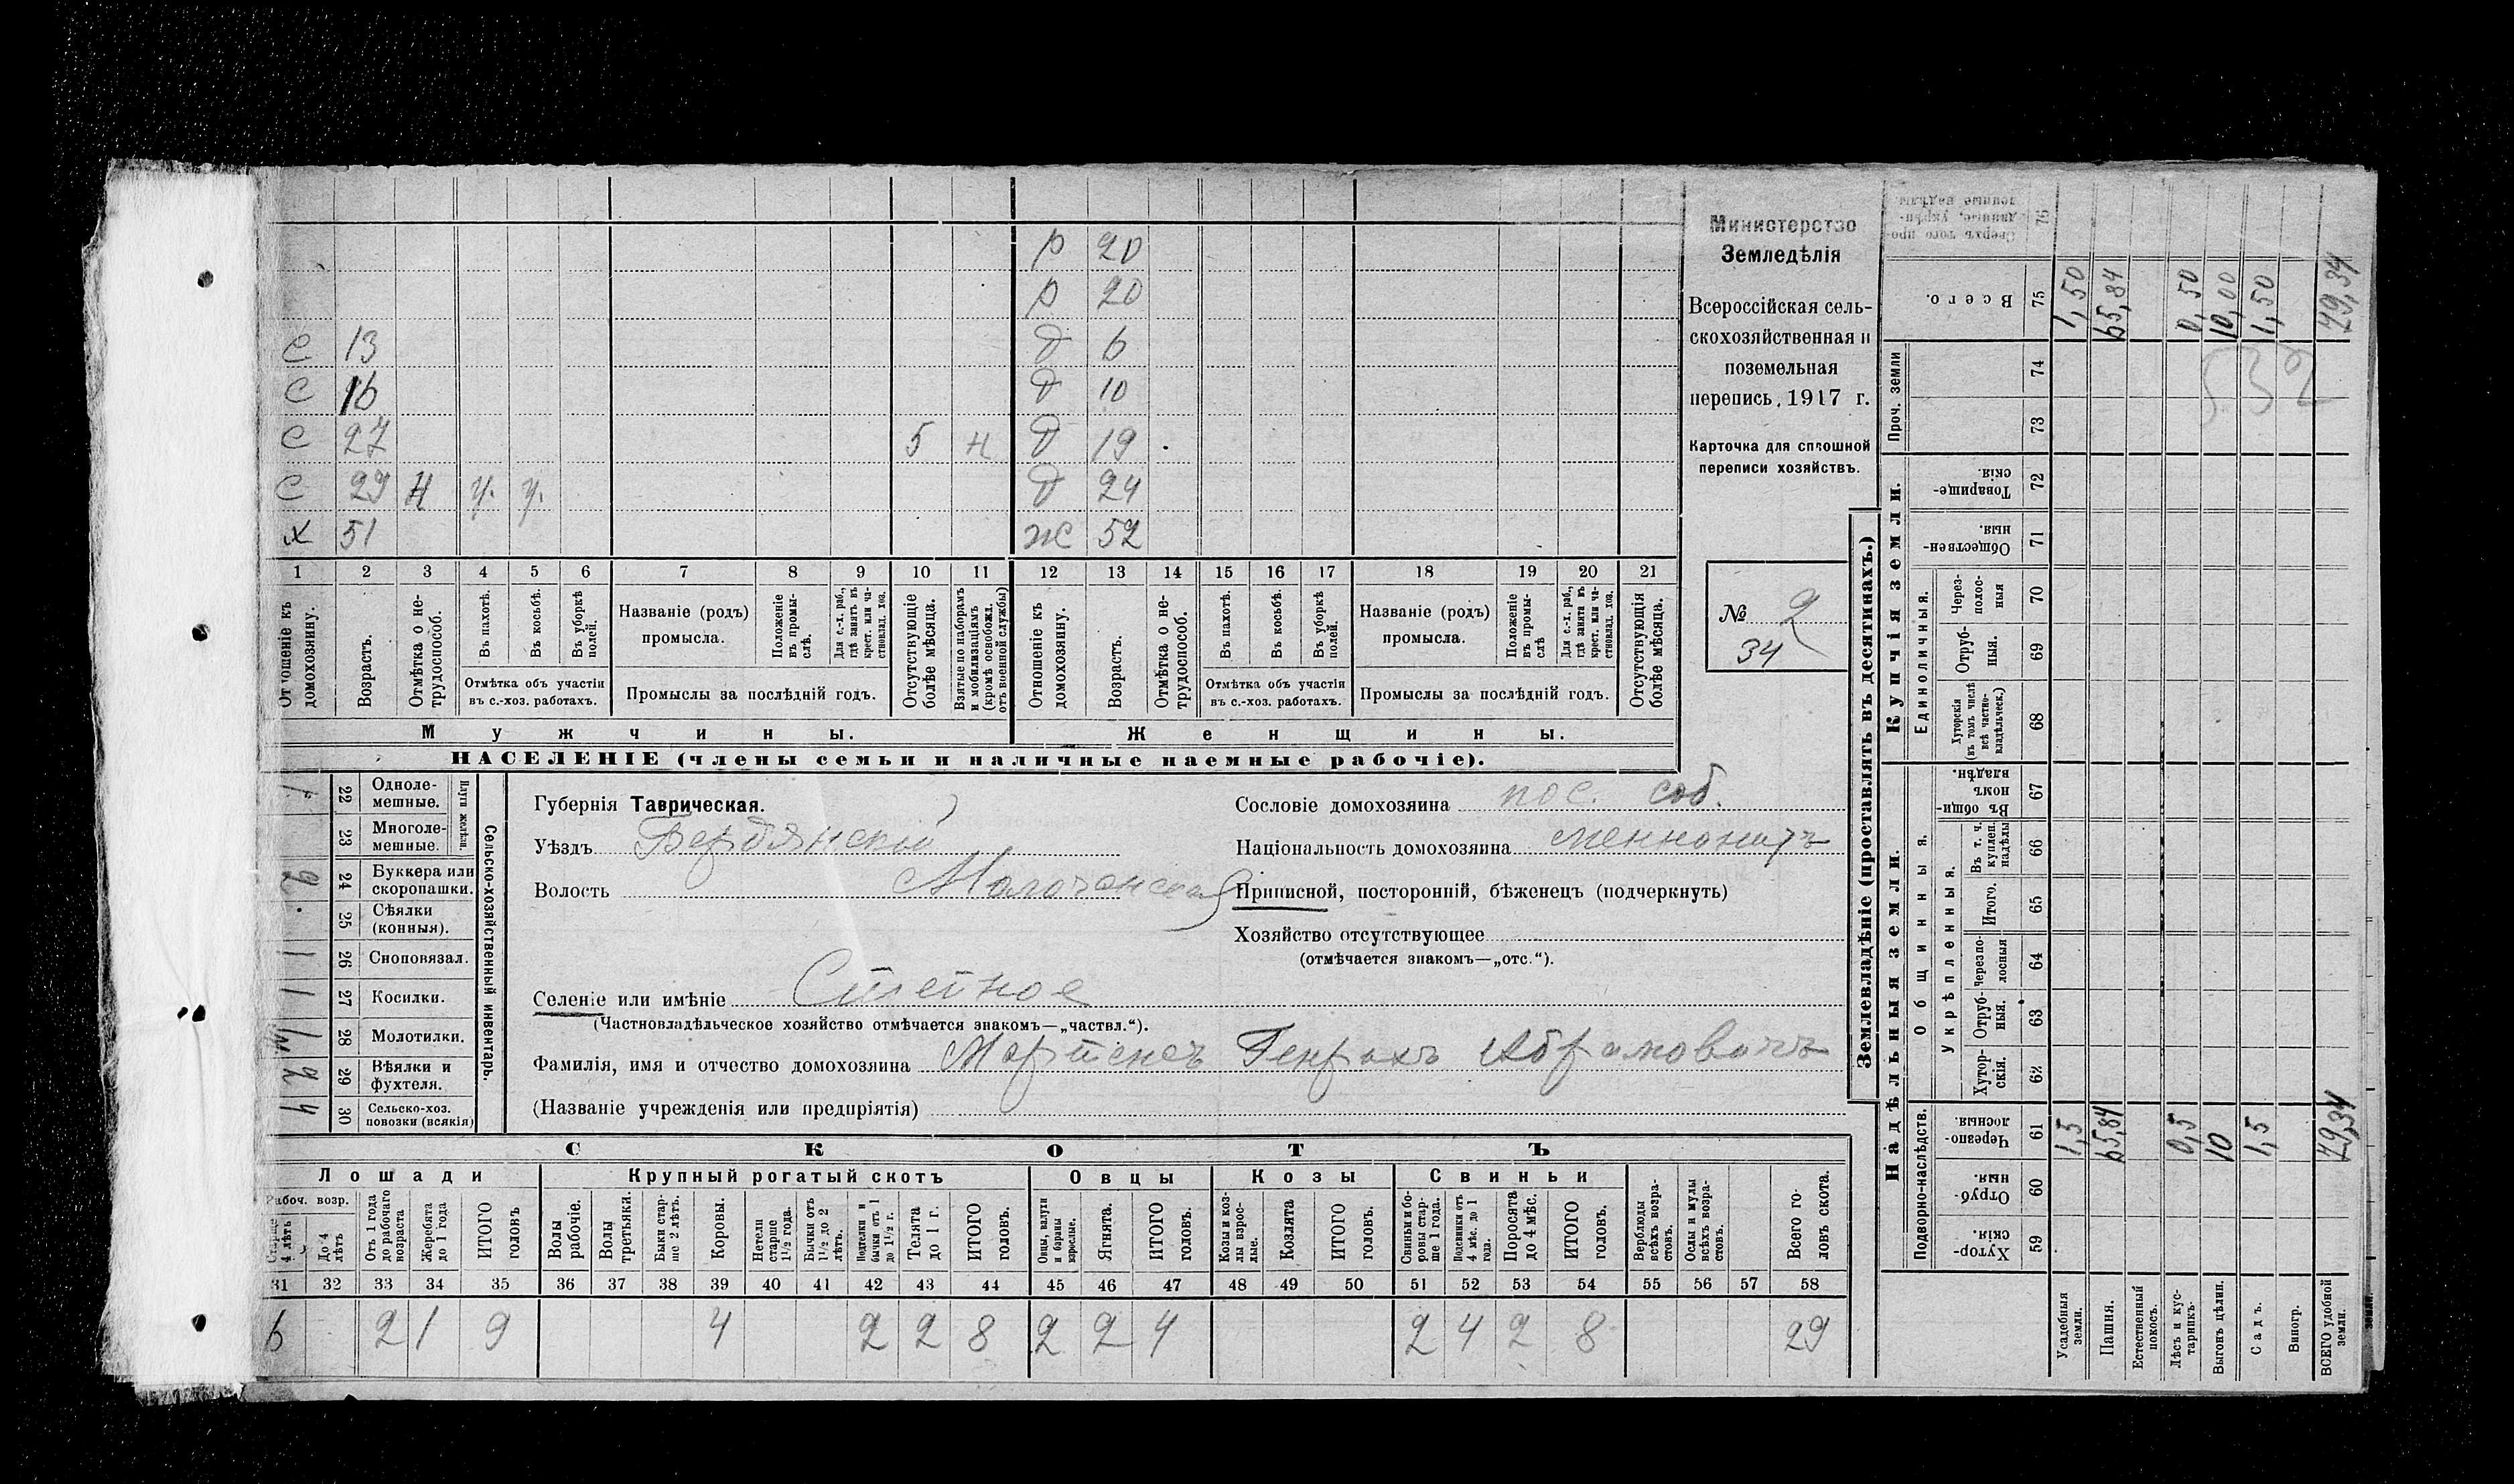 р 20
р 20
с 13 д 6
с 16 д 10
с 27 5 н д 19
с 29 н у. у. д 24
х 51 ж 52
1 2 3 4 5 6 7 8 9 10 11 12 13 14 15 16 17 18 19 20 21
Отношеніе къ домохозяину.
Возрастъ.
Отмѣтка о не-трудоспособ.
Въ пахотѣ.
Въ косьбѣ.
Въ уборкѣ полей.
Отмѣтка объ участіи
въ с.-хоз. работахъ.
Названіе (родъ)
промысла.
Положеніе въ промы-слѣ.
Для с.-х. раб., гдѣ занятъ въ крест. или ча-стновлад. хоз.
Промыслы за послѣдній годъ.
Отсутствующіе болѣе мѣсяца.
Взятые по наборамъ и мобилизаціямъ (кромѣ освобожд. отъ военной службы)
Отношеніе къ домохозяину.
Возрастъ.
Отмѣтка о не-трудоспособ.
Въ пахотѣ.
Въ косьбѣ.
Въ уборкѣ полей.
Отмѣтка объ участіи
въ с.-хоз. работахъ.
Названіе (родъ)
промысла.
Положеніе въ промы-слѣ
Для с.-х. раб., гдѣ занята въ крест. или ча-стновлад. хоз.
Промыслы за послѣдній годъ.
Отсутствующія болѣе мѣсяца.
Мужчины.
Женщины.
НАСЕЛЕНІЕ (члены семьи и наличные наемные рабочіе).
Министерство
Земледѣлія
Всероссійская сель-
скохозяйственная и
поземельная
перепись 1917 г.
Карточка для сплошной
переписи хозяйствъ.
№ 2
34
Сельско-хозяйственный инвентарь.
Плуги желѣзн.
1 22 Одноле-мешные.
23 Многоле-мешные.
2 24 Буккера или скоропашки.
25 Сѣялки (конныя).
1 26 Сноповязал.
1 27 Косилки.
28 Молотилки.
2 29 Вѣялки и фухтеля.
4 30 Сельско-хоз. повозки (всякія)
Губернія Таврическая.
Уѣздъ Бердянскій
Волость Молочанская
Сословіе домохозяина пос. соб.
Національность домохозяина меннонитъ
Приписной, посторонній, бѣженецъ (подчеркнуть)
Хозяйство отсутствующее
(отмѣчается знакомъ—„отс.“).
Селеніе или имѣніе Степное
(Частновладѣльческое хозяйство отмѣчается знакомъ—„частвл.“).
Фамилія, имя и отчество домохозяина Мартенсъ Генрихъ Абрамовичъ
(Названіе учрежденія или предпріятія)
СКОТЪ
Лошади
Крупный рогатый скотъ
Овцы
Козы
Свиньи
Рабоч. возр.
Старше 4 лѣтъ
До 4 лѣтъ
Отъ 1 года до рабочаго возраста
Жеребята до 1 года
ИТОГО головъ
Волы рабочіе.
Волы третьяки.
Быки стар-ше 2 лѣтъ.
Коровы.
Нетели старше 1½ года.
Бычки отъ 1½ до 2 лѣтъ.
Подтелки и бычки отъ 1 до 1½ г.
Телята до 1 г.
ИТОГО головъ.
Овцы, валухи и бараны взрослые.
Ягнята.
ИТОГО головъ.
Козы и коз-лы взрос-лые.
Козлята
ИТОГО головъ.
Свиньи и бо-ровы стар-ше 1 года.
Подсвинки отъ 4 мѣс. до 1 года.
Поросята до 4 мѣс.
ИТОГО головъ.
Верблюды всѣхъ возра-стовъ.
Ослы и мулы всѣхъ возра-стовъ.
Всего го-ловъ скота.
31 32 33 34 35 36 37 38 39 40 41 42 43 44 45 46 47 48 49 50 51 52 53 54 55 56 57 58
6 2 1 9 4 2 2 8 2 2 4 2 4 2 8 29
Землевладѣніе (проставлять въ десятинахъ.)
Купчія земли.
Надѣльныя земли.
Сверхъ того про-данные, укрѣп-ленные надѣлы. 76
Всего. 75
1,50 65,84 0,50 10,00 1,50 79,34
Проч. земли
74
73
532
Товарище-скія. 72
Обществен-ныя. 71
Единоличныя.
Через-полос-ныя 70
Отруб-ныя. 69
Хуторскія (въ томъ числѣ всѣ частно-владѣльческ.) 68
Общинныя.
Въ общи-номъ владѣн. 67
Укрѣпленныя.
Въ т. ч. куплен. надѣлы 66
Итого. 65
Черезпо-лосныя 64
Отруб-ныя. 63
Хутор-скія. 62
Подворно-наслѣдств.
Черезпо-лосныя. 61
1,5 65,84 0,5 10 1,5 79,34
Отруб-ныя 60
Хутор-скія 59
Усадебныя земли.
Пашня.
Естественный покосъ.
Лѣсъ и кус-тарникъ.
Выгонъ цѣлин.
Садъ.
Виногр.
ВСЕГО удобной земли.